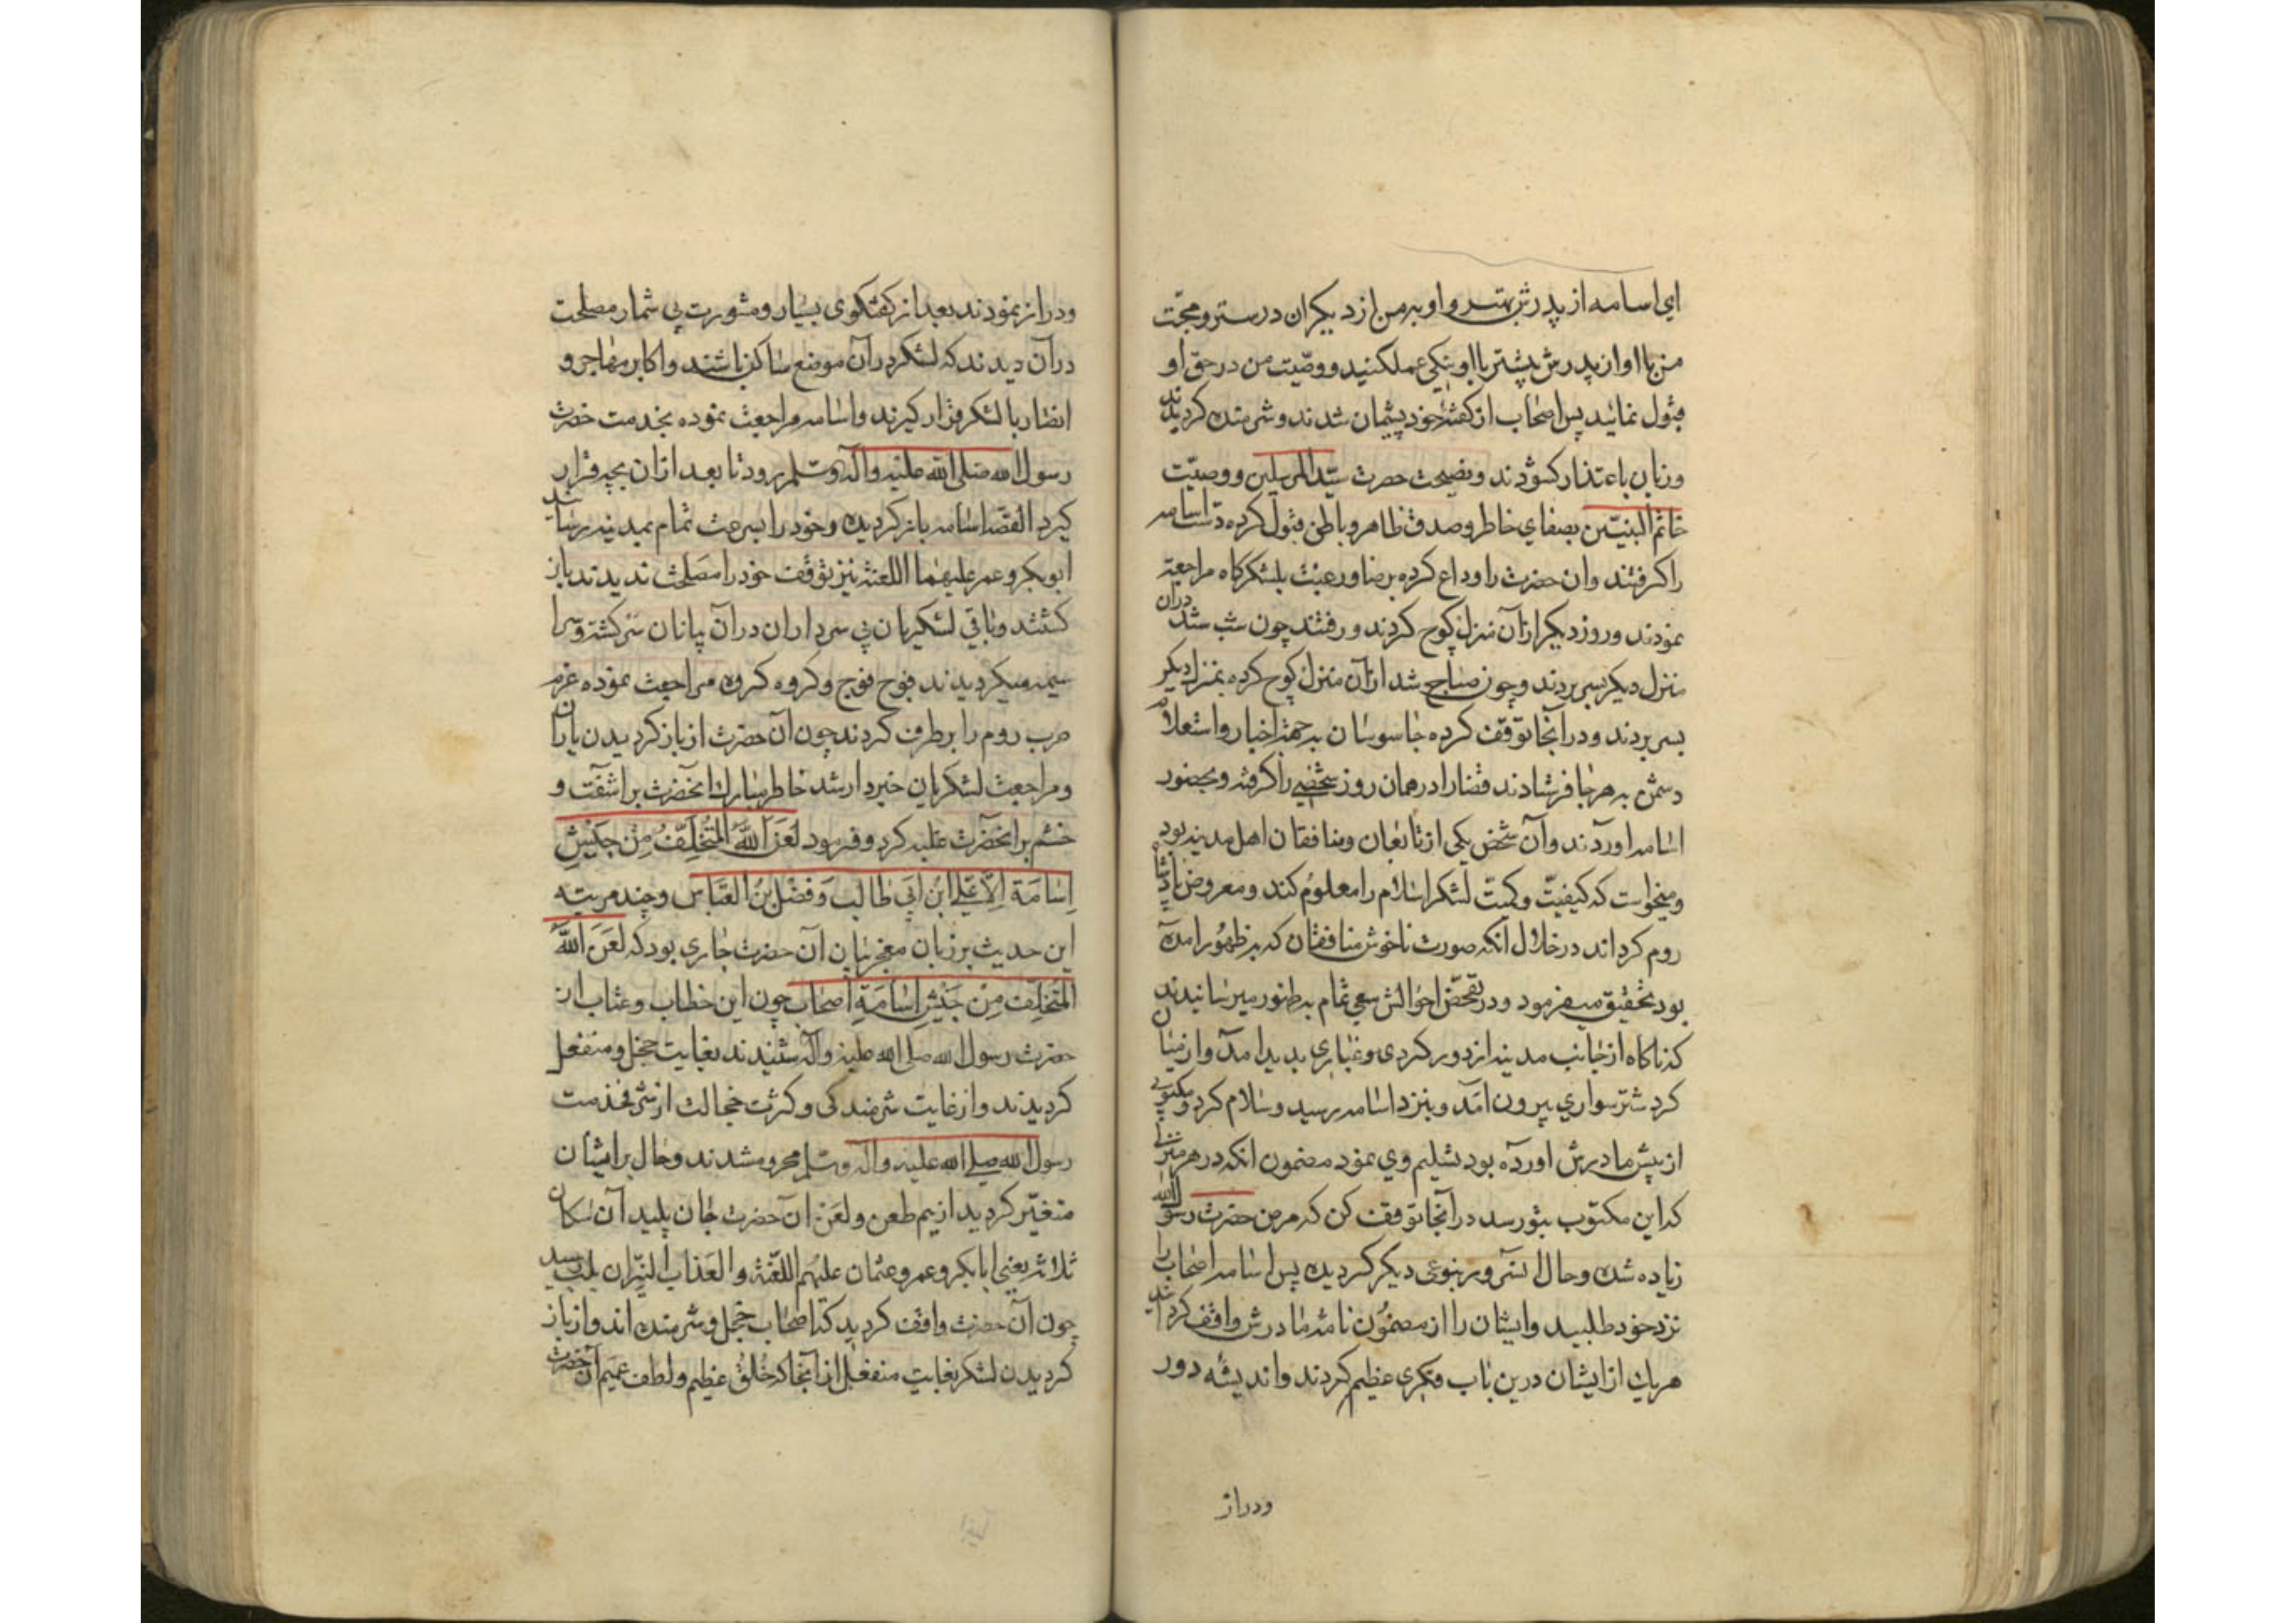 ای اسامه از پدرش بهتر و او بر من از دیگران درستر و محبّت
من با او از پدرش پیشتر با او بنیکی عمل کنید و وصّیت من در حق او
قبول نمائید پس اصحاب از کفته خود پشیمان شدند و شرمنده کردیدند
و زبان باعتذار کشودند و نصیحت حضرت سیّد المرسلین و وصیّت
خاتم النبیّین بصفای خاطر و صدق ظاهر و باطن قبول کرده دست اسامه
را کرفتند و ان حضرت را وداع کرده برضا و رغبت بلشکرکاه مراجعة
نمودند و روز دیکر از آن منزل کوچ کردند و رفتند چون شب شد دران
منزل دیکر بسر بردند و چون صباح شد از آن منزل کوچ کرده بمنزل دیکر
بسر بردند و در آنجا توقف کرده جاسوسان به جهة اخبار و استعلام
دشمن به هر جا فرستادند قضا را در همان روز شخصی را کرفته و بحضور
اسامه اوردند و آن شخص یکی از تابعان و منافقان اهل مدینه بود
و میخواست که کیفیّت و کمیّت لشکر اسلام را معلوم کند و معروض پادشاه
روم کرداند در خلال آنکه صورت ناخوش منافقان که بر ظهور امده
بود تحقیق میفرمود و در تفحّص احوالش سعی تمام به ظهور میرسانیدند
که ناکاه از جانب مدینه از دور کردی و غباری بدید امد و از میان
کرد شتر سواری بیرون آمد و بنزد اسامه رسید و سلام کرد و مکتوبی
از پیش مادرش اورده بود تسلیم وی نمود مضمون انکه در هر منزلی
که این مکتوب بتو رسد در آنجا توقف کن که مرض حضرت رسول الله
زیاده شده و حال انسرور بنوعی دیکر کردیده پس اسامه اصحاب را
نزد خود طلبید و ایشان را از مضمون نامهٔ مادرش واقف کردانید
هر یك از ایشان درین باب فکری عظیم کردند و اندیشهٔ دور
ودراز
و دراز نمودند بعد از کفتکوی بسیار و مشورت بی شمار مصلحت
در آن دیدند که لشکر در آن موضع ساکن باشند و اکابر مهاجر و
انصار با لشکر قرار کیرند و اسامه مراجعت نموده بخدمت حضرت
رسول الله صلی الله علیه و آله و سلم برود تا بعد از ان بچه قرار
کیرد القصّه اسامه باز کردیده و خود را بسرعت تمام بمدینه رسانید
ابوبکر و عمر علیهما اللعنة نیز توقف خود را مصلحت ندیدند باز
کشتند و باقی لشکریان بی سرداران در آن بیابان سرکشته و سرا
سیمه میکردیدند فوج فوج و کروه کروه مراجعت نموده عزم
حرب روم را بر طرف کردند چون آن حضرت از باز کردیدن یاران
و مراجعت لشکریان خبردار شد خاطر مبارك انحضرت بر اشفت و
خشم بر انحضرت غلبه کرد و فرمود لَعَنَ اللّهُ المتُخَلِّفُ مِنْ جَیْشِ
اِسَامَةَ اِلاّ عَلی ابن ابَی طالب وَ فَضْل بنُ العَبّاس و چند مرتبه
این حدیث بر زبان معجز بیان آن حضرت جاری بود که لَعَنَ اللّهُ
المتَخلِّف مِنْ جَیْشِ اُسَامَةِ اصحاب چون این خطاب و عتاب از
حضرت رسول الله صلی الله علیه و آله شنیدند بغایت خجل و منفعل
کردیدند و از غایت شرمندکی و کثرت خجالت از شرف خدمت
رسول الله صلی الله علیه و اله و سلم محروم شدند و حال بر ایشان
متغیّر کردید از بیم طعن و لعن ان حضرت جان پلید آن سکان
ثلاثه یعنی ابابکر و عمر و عثمان علیهم اللعنة و العذاب النیّران بلب رسید
چون آن حضرت واقف کردید که اصحاب خجل و شرمنده اند و از باز
کردیدن لشکر بغایت منفعل از آنجا که خُلق عظیم و لطف عمیم آن حضرت